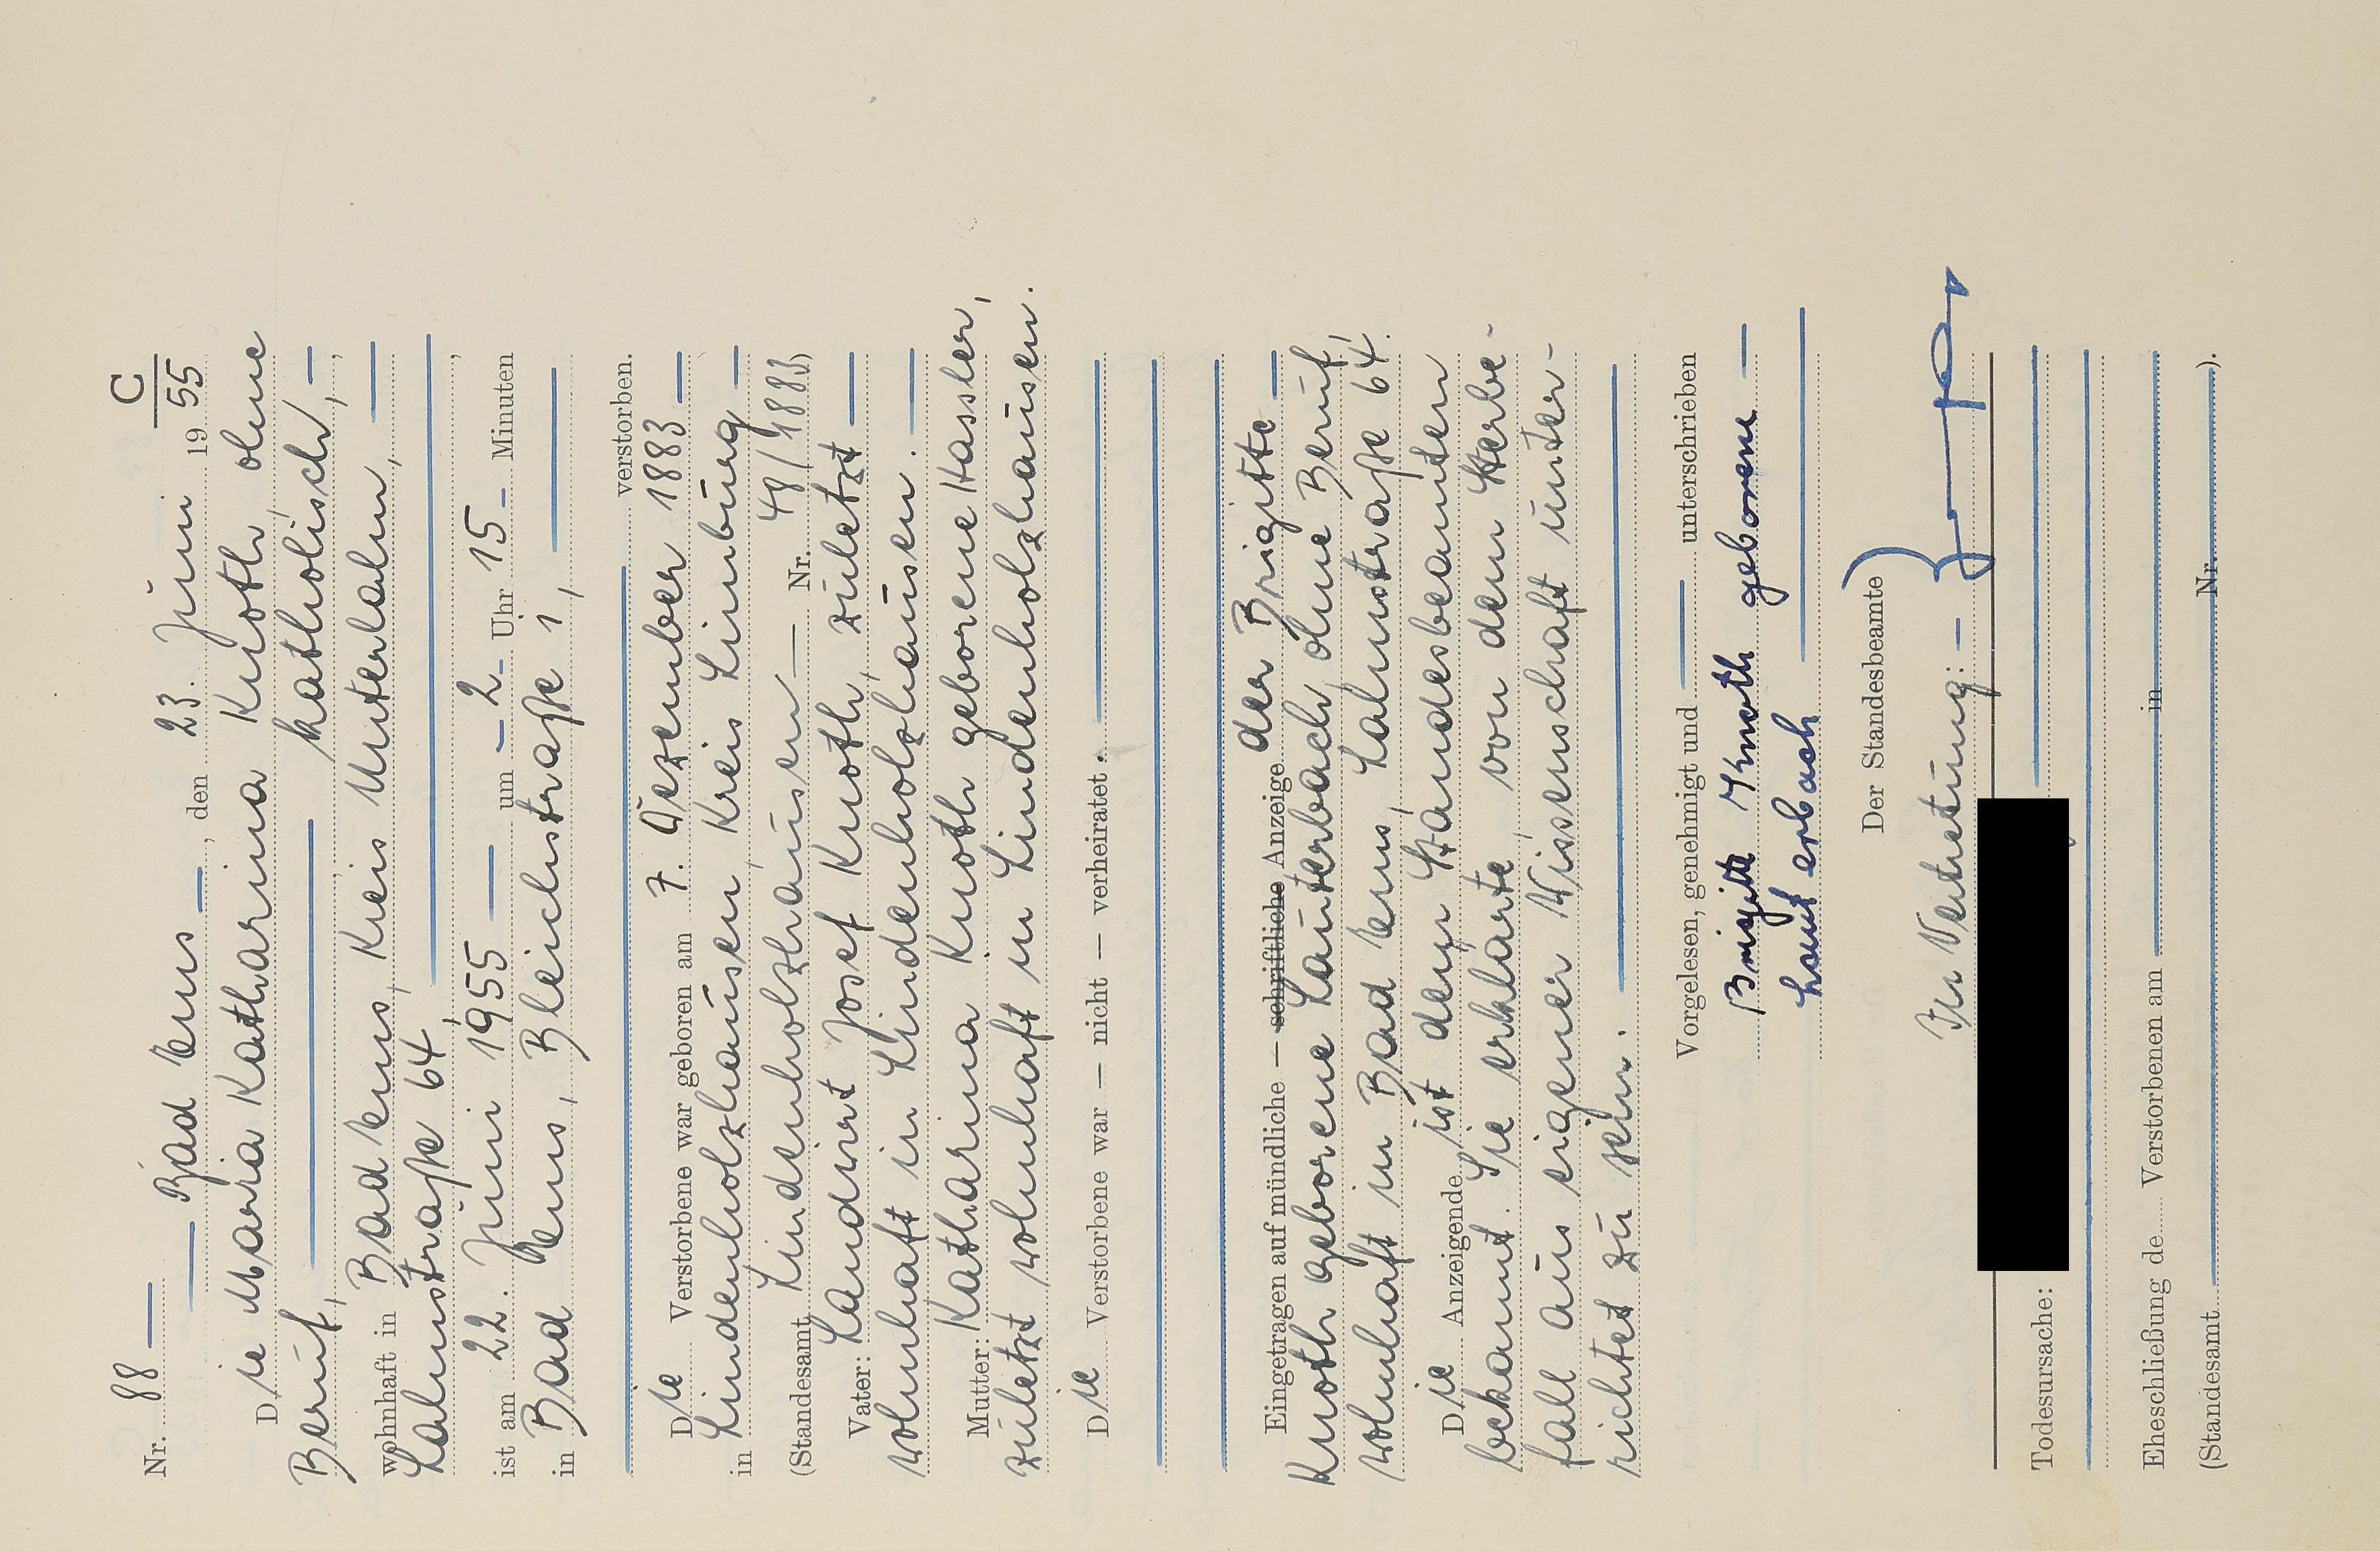 C
Nr. 88
Bad Ems, den 23. Juni 19 55
Die Maria Katharina Knoth, ohne
Beruf, katholisch,
wohnhaft in Bad Ems, Kreis Unterlahn,
Lahnstraße 64,
ist am 22. Juni 1955 um 2 Uhr 15 Minuten
in Bad Ems, Bleichstraße 1,
verstorben.
Die Verstorbene war geboren am 7. Dezember 1883
in Lindenholzhausen, Kreis Limburg
(Standesamt Lindenholzhausen — Nr. 48/1883)
Vater: Landwirt Josef Knoth, zuletzt
wohnhaft in Lindenholzhausen.
Mutter: Katharina Knoth geborene Hassler,
zuletzt wohnhaft in Lindenholzhausen.
Die Verstorbene war — nicht — verheiratet.
Eingetragen auf mündliche — schriftliche Anzeige der Brigitte
Knoth geborene Lauterbach, ohne Beruf,
wohnhaft in Bad Ems, Lahnstraße 64.
Die Anzeigende ist dem Standesbeamten
bekannt. Sie erklärte, von dem Sterbe-
fall aus eigener Wissenschaft unter-
richtet zu sein.
Vorgelesen, genehmigt und unterschrieben
Brigitte Knoth geborene
Lauterbach
Der Standesbeamte
In Vertretung:
Todesursache:
Eheschließung de Verstorbenen am in
(Standesamt Nr. ).